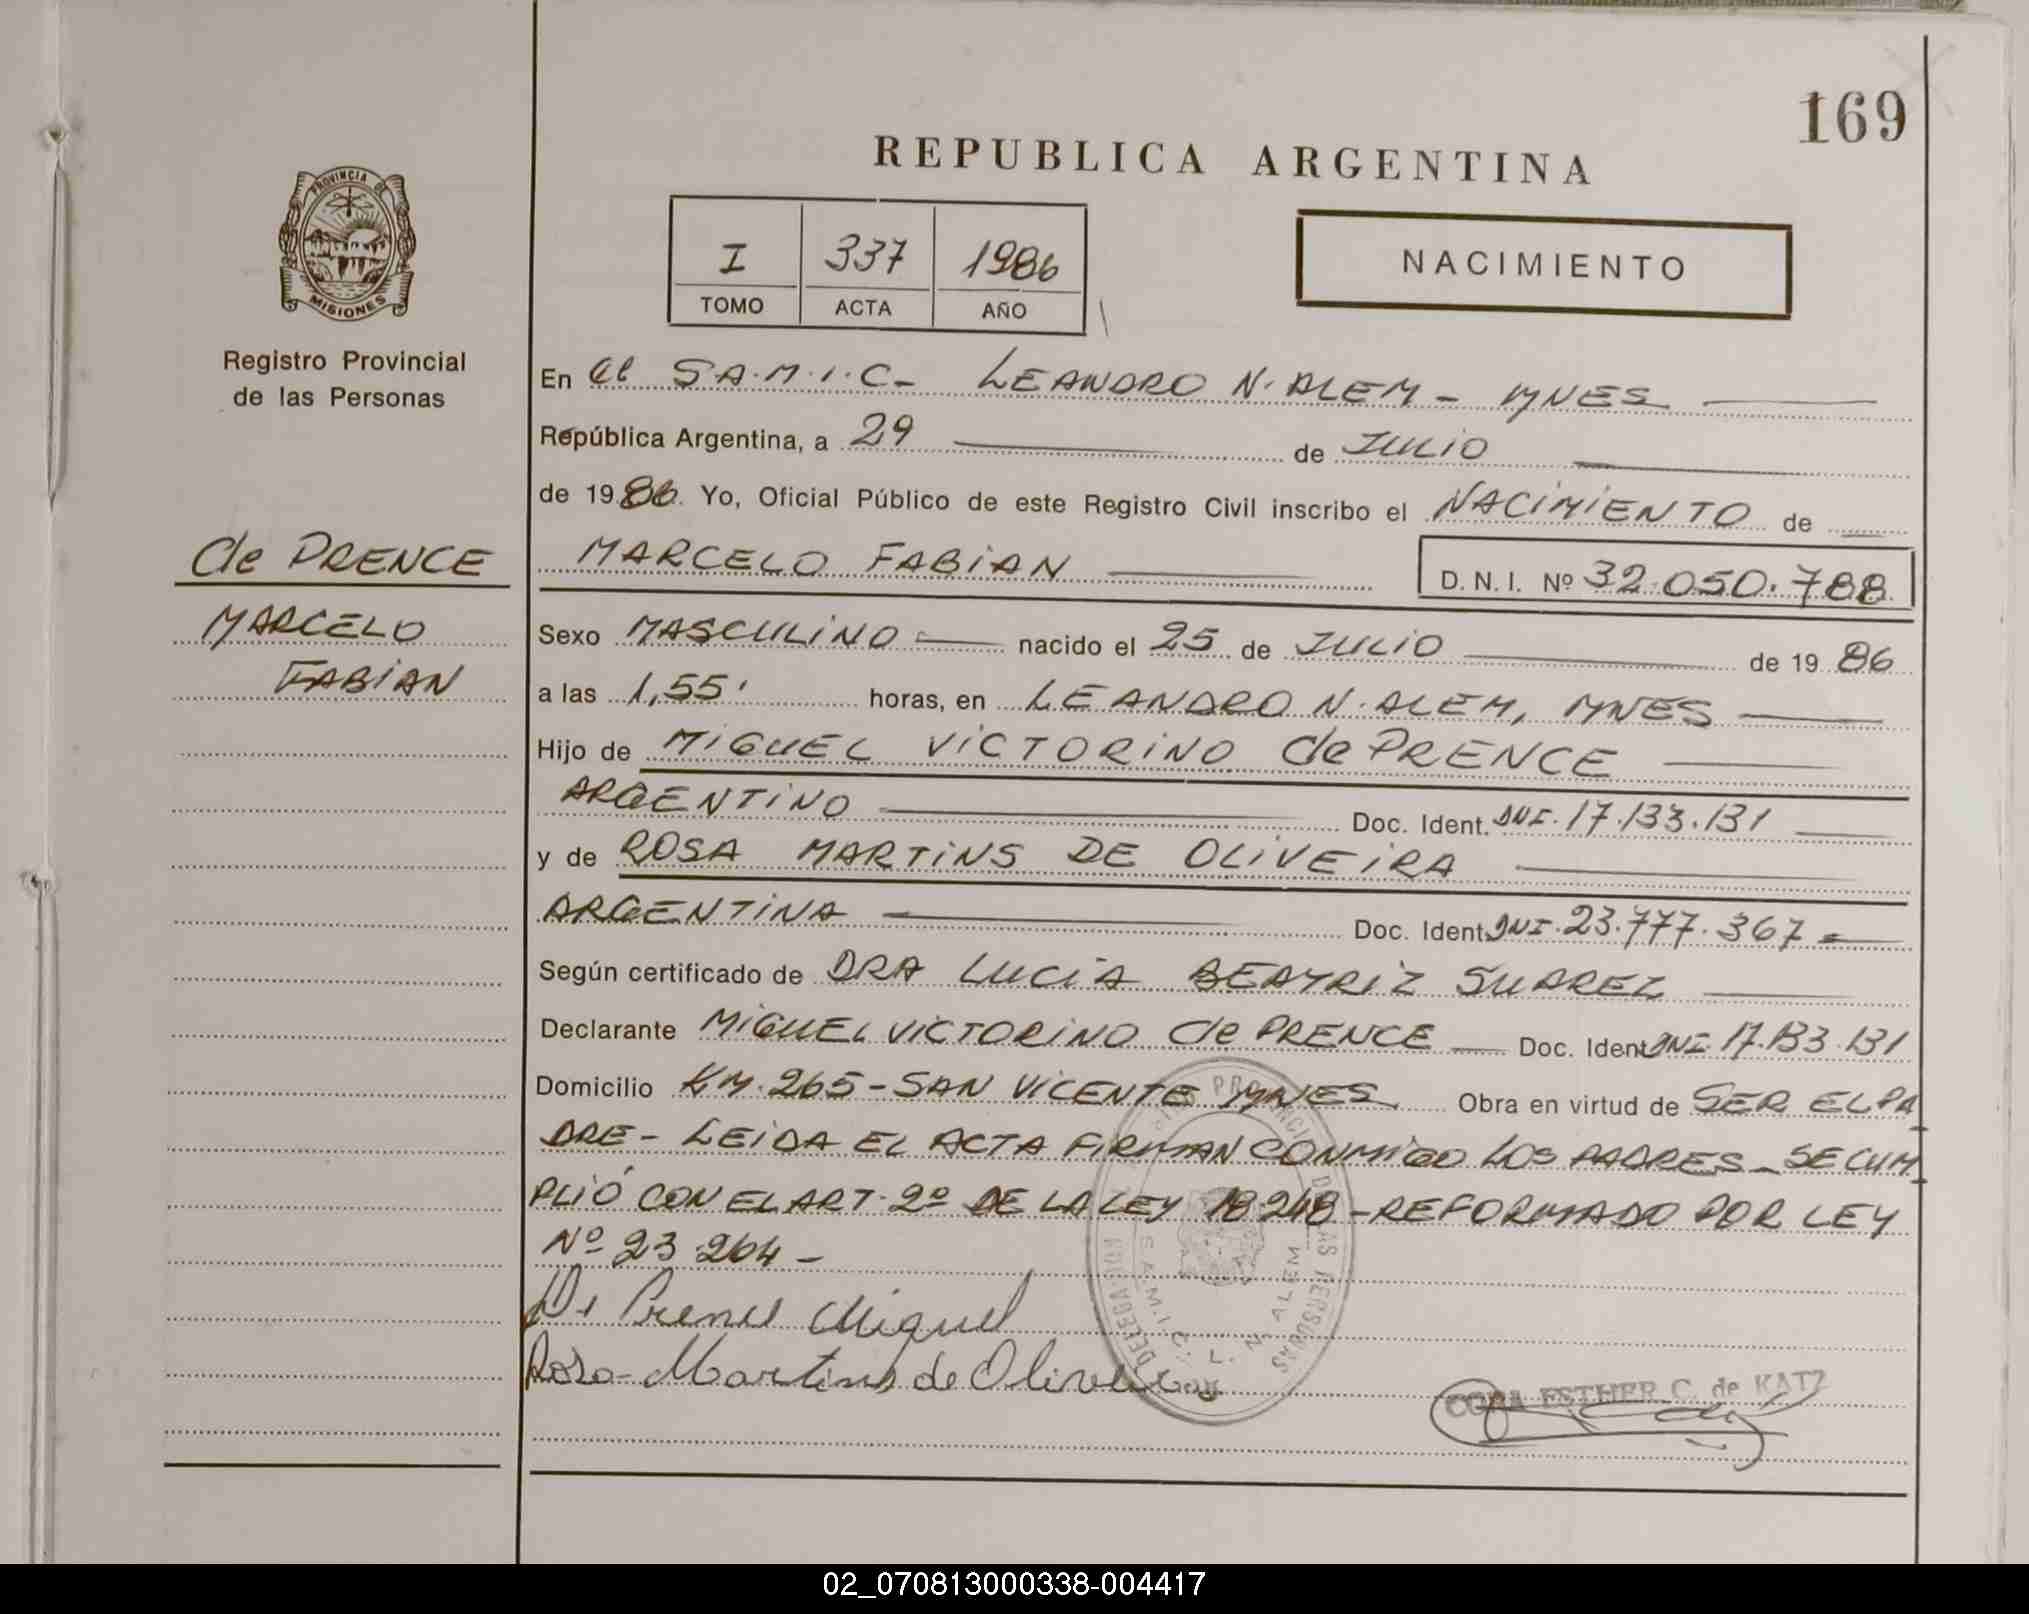 169
REPUBLICA ARGENTINA
PROVINCIA DE
MISIONES
Registro Provincial
de las Personas
I 337 1986
TOMO ACTA AÑO
NACIMIENTO
En el S.A.M.I.C- LEANDRO N. ALEM - MNES
República Argentina, a 29 de JULIO
de 1986. Yo, Oficial Público de este Registro Civil inscribo el NACIMIENTO de
MARCELO FABIAN D. N. I. Nº 32.050.788
de PRENCE
MARCELO
FABIAN
Sexo MASCULINO nacido el 25 de JULIO de 1986
a las 1,55' horas, en LEANDRO N. ALEM, MNES
Hijo de MIGUEL VICTORINO de PRENCE
ARGENTINO Doc. Ident. DNI. 17.133.131
y de ROSA MARTINS DE OLIVEIRA
ARGENTINA Doc. Ident. DNI. 23.777.367
Según certificado de DRA LUCIA BEATRIZ SUAREZ
Declarante MIGUEL VICTORINO de PRENCE Doc. Ident DNI 17.133.131
Domicilio KM. 265 - SAN VICENTE MNES Obra en virtud de SER EL PA
DRE - LEIDA EL ACTA FIRMAN CONMIGO LOS PADRES - SE CUM
PLIÓ CON EL ART. 2º DE LA LEY 18248 - REFORMADO POR LEY
Nº 23.264 -
De Prence Miguel
Rosa Martins de Oliveira
S.A.M.I.C. L. N. ALEM
ESTHER C. de KATZ
02_070813000338-004417